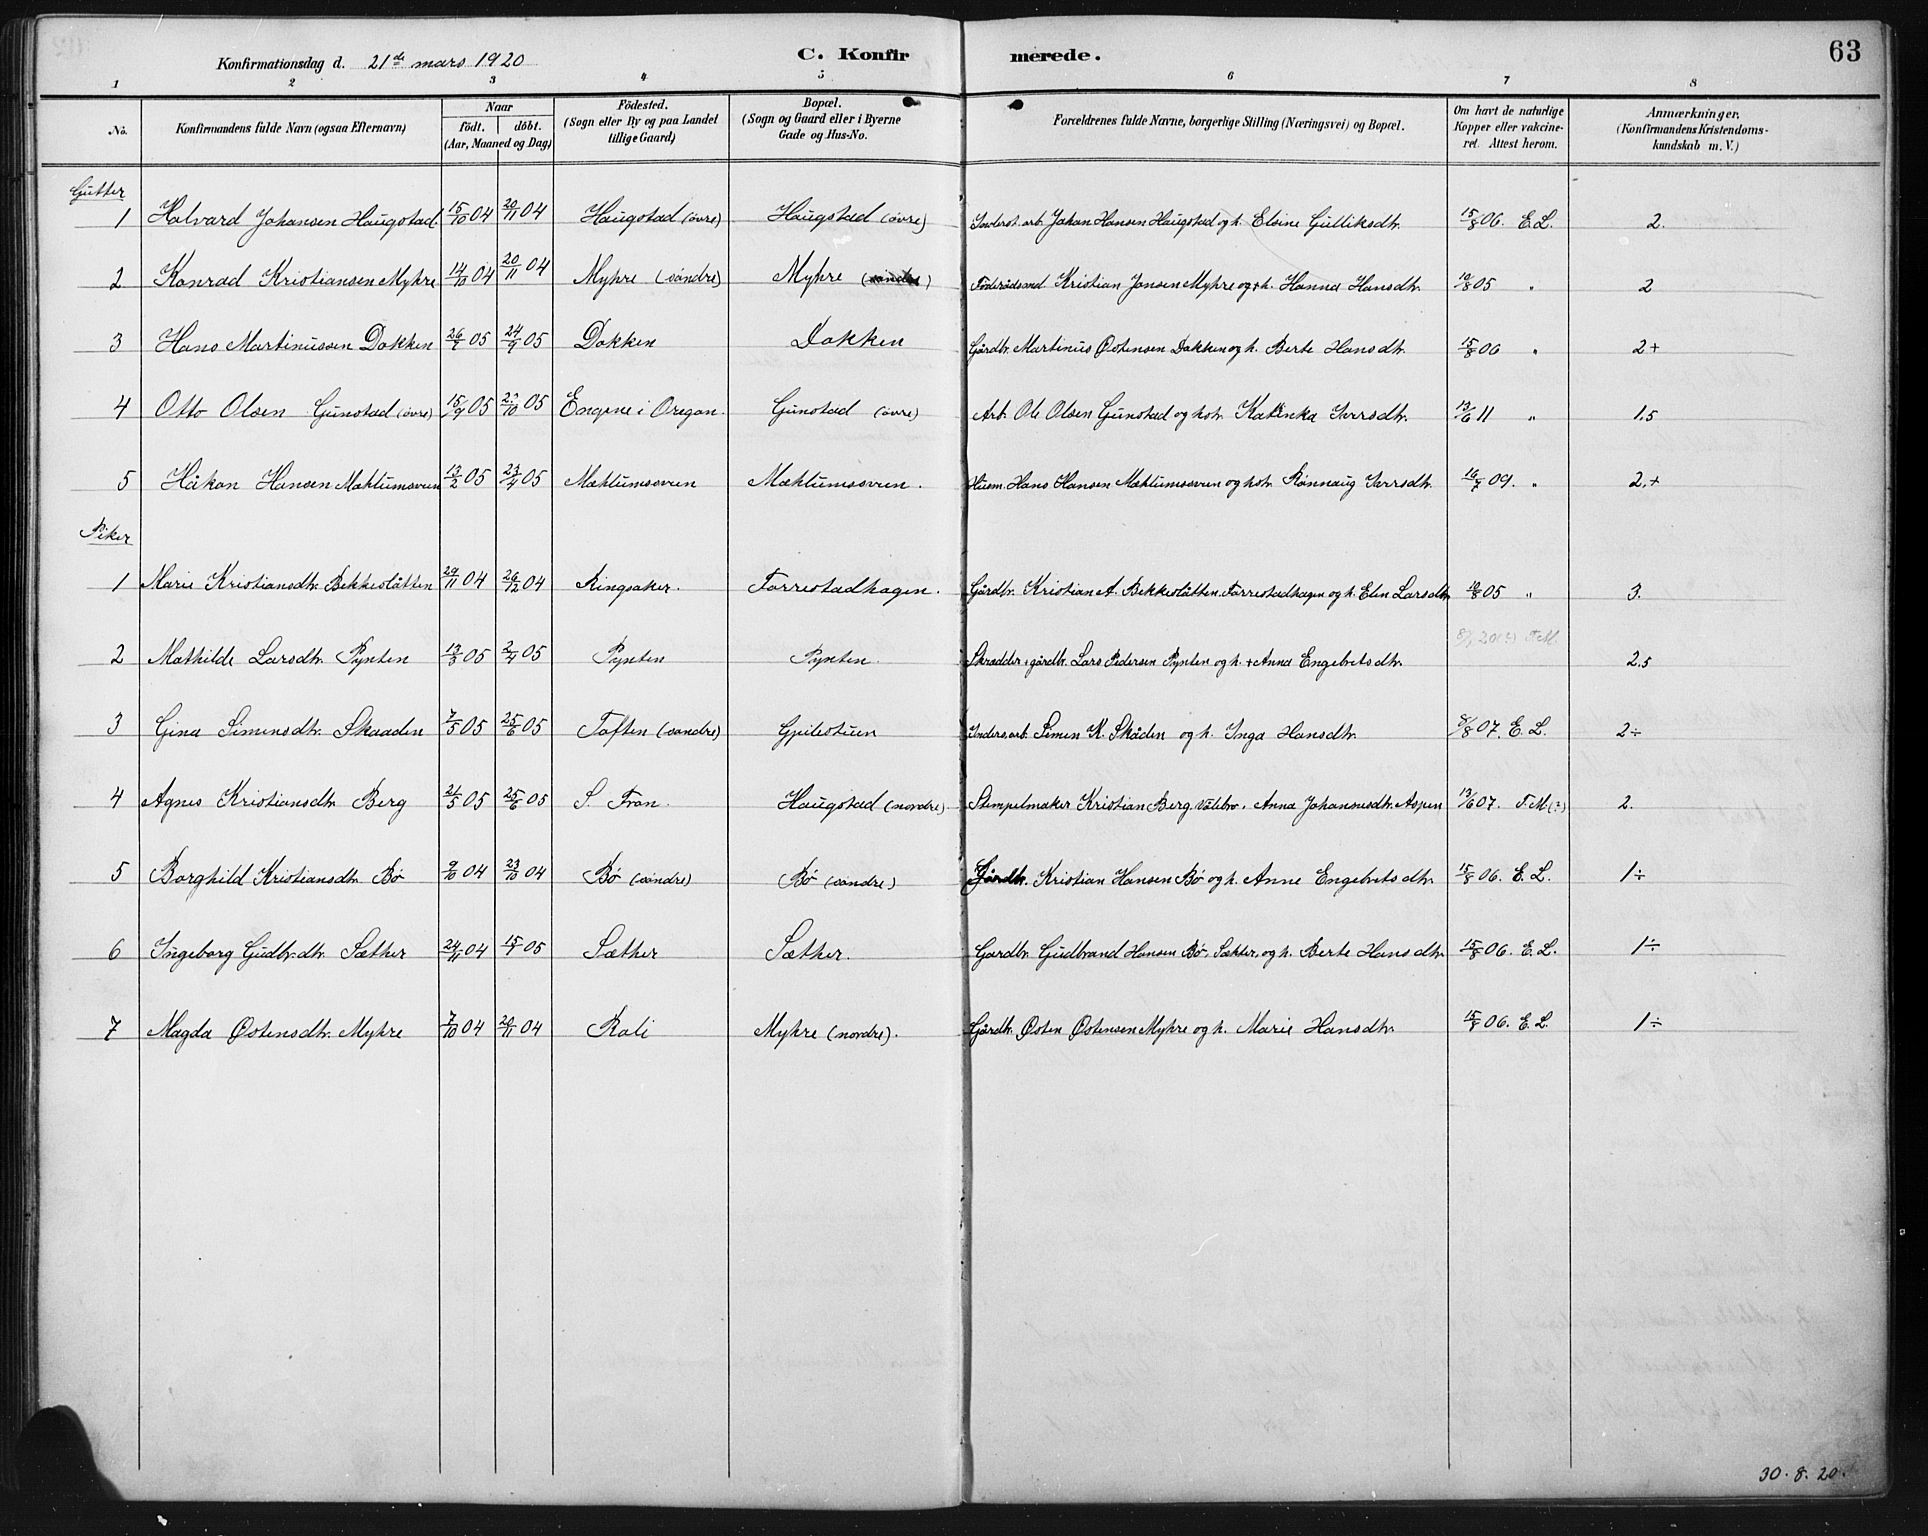 Konfirmationsdag d. 21de mars 1920 C. Konfirmerede. 63
1 2 3 4 5 6 7 8
No. Konfirmandens fulde Navn (ogsaa Efternavn) Naar født. døbt. (Aar, Maaned og Dag) Fødested. (Sogn eller By og paa Landet tillige Gaard) Bopæl. (Sogn og Gaard eller i Byerne Gade og Hus-No. Forældrenes fulde Navne, borgerlige Stilling (Næringsvei) og Bopæl. Om havt de naturlige Kopper eller vakcineret. Attest herom. Anmærkninger. (Konfirmandens Kristendomskundskab m. V.)
Gutter
1 Halvard Johansen Haugstad 15/10 04 20/11 04 Haugstad (øvre) Haugstad (øvre) arb. Johan Hansen Haugstad og h. Elsine Gulliksdtr. 15/8 06. E.L. 2.
2 Konrad Kristiansen Myhre 14/10 04 20/11 04 Myhre (søndre) Myhre (søndre) Føderådsmd Kristian Jonsen Myhre og + h. Hanna Hansdtr. 10/8 05 " 2
3 Hans Martinussen Dokken 26/7 05 24/9 05 Dokken Dokken Gårdbr. Martinus Østensen Dokken og h. Berte Hansdtr. 15/8 06 " 2+
4 Otto Olsen Gunstad (øvre) 15/9 05 10 05 Engene i Oregon. Gunstad (øvre) Arb. Ole Olsen Gunstad og hstr. Katinka Iversdtr. 13/6 11 " 1,5
5 Håkon Hansen Mæhlumsveen 13/2 05 23/4 05 Mæhlumsveen Mæhlumsveen. Husm. Hans Hansen Mæhlumsveen og hstr. Rønnaug Iversdtr. 16/7 09. " 2,+
Piker
1 Marie Kristiansdtr. Bekkeslåtten 29/11 04 26/12 04 Ringsaker. Torrestadhagen. Gårdbr. Kristian A. Bekkeslåtten, Torrestadhagen og h. Elen Larsdtr 10/8 05 " 3.
2 Mathilde Larsdtr. Pynten 13/3 05 2/4 05 Pynten Pynten. Skrædder, gårdbr. Lars Pedersen Pynten og h. + Anna Engebretsdtr. 20(?) F.M. 2,5
3 Gina Simensdtr. Skaaden 7/5 05 25/6 05 Toften (søndre) Gpilestuen Inders. arb. Simen K. Skåden og h. Inga Hansdtr. 8/8 07. E.L. 2÷
4 Agnes Kristiansdtr. Berg 21/5 05 25/6 05 S. Fron. Haugstad (nordre). Stempelmaker Kristian Berg, Anna Johannesdtr. Aspen 13/6 07. F.M(?) 2.
5 Borghild Kristiansdtr. Bø 9/10 04 23/10 04 Bø (søndre) Bø (søndre) Gårdbr. Kristian Hansen Bø og h. Anne Engebretsdtr. 15/8 06. E.L. 1÷
6 Ingeborg Gudbr.dtr. Sæther 24/11 04 15/1 05 Sæther Sæther. Gardbr. Gudbrand Hansen Bø, Sæther, og h. Berte Hansdtr. 15/8 06. E.L. 1÷
7 Magda Østensdtr. Myhre 7/10 04 20/11 04 Roli Myhre (nordre). Gårdbr. Østen Østensen Myhre og h. Marie Hansdtr. 15/8 06. E.L. 1÷
30.8.20.